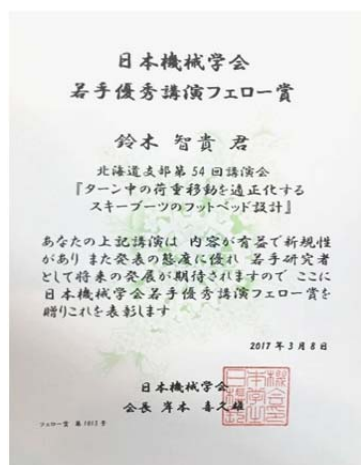 日本機械学会
若手優秀講演フェロー賞
鈴木 智貴 君
北海道支部第54回講演会
『ターン中の荷重移動を適正化する
スキーブーツのフットベッド設計』
あなたの上記講演は 内容が有益で新規性
があり また発表の態度に優れ 若手研究者
として将来の発展が期待されますので ここに
日本機械学会若手優秀講演フェロー賞を
贈りこれを表彰します
2017年3月8日
日本機械学会
会長 岸本 喜久雄
フェロー賞 第1013号